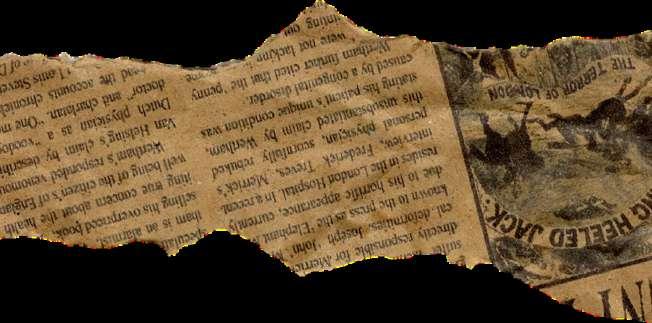 NG HEELED JACK:
THE TERROR OF LONDON
directly responsible for Merric
cal deformities. Joseph "John"
known to the press as the "Elephant
due to his horrific appearance, currently
resides in the London Hospital. In a recent
interview, Frederick Treves, Merrick's
personal physician, scornfully rebuked
this unsubstantiated claim by Wertham
stating his patient's unique condition was
caused by a congenital disorder.
Wertham further cited that the "penny
were not lackin
speculati
tham is an alarmist,
selling his overpriced books
ning true concern about the health
well being of the citizen's of Engl
Wertham's responded venomous
Van Helsing's claim by describi
Dutch physician as a "voodoo
doctor" and charlatan. "One m
read the accounts chronicl
Louis Steve